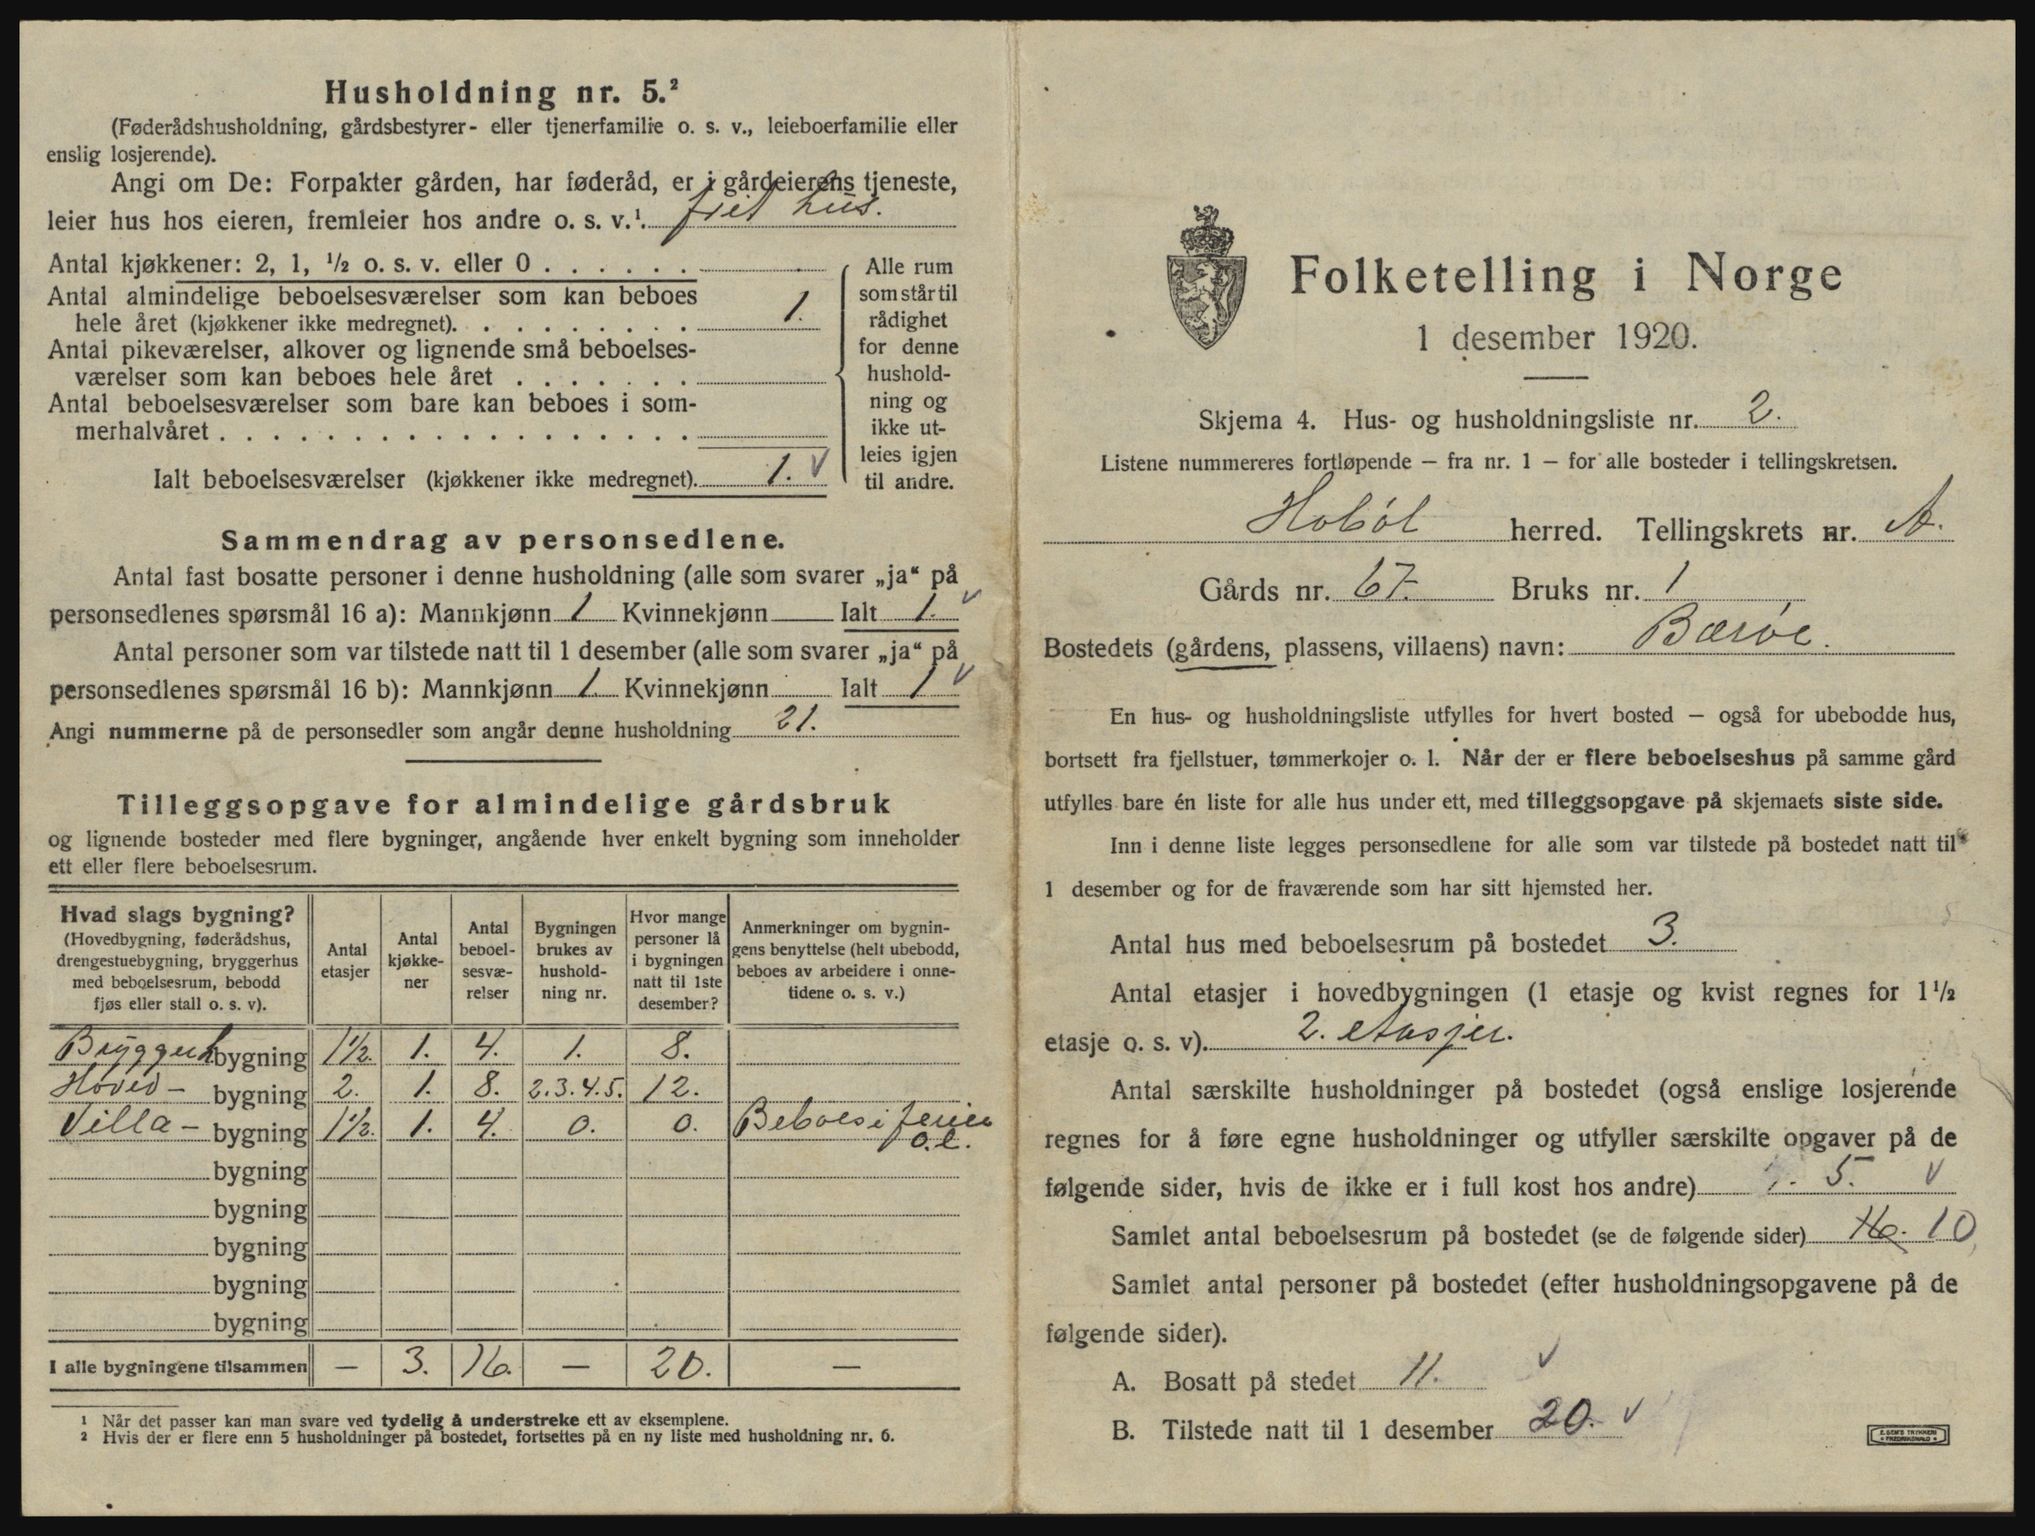 Husholdning nr. 5.²
(Føderådshusholdning, gårdsbestyrer- eller tjenerfamilie o. s. v., leieboerfamilie eller
enslig losjerende).
Angi om De: Forpakter gården, har føderåd, er i gårdeierens tjeneste,
leier hus hos eieren, fremleier hos andre o. s. v.¹. friet hus.
Antal kjøkkener: 2, 1, ½ o. s. v. eller 0 . . . . . .
Antal almindelige beboelsesværelser som kan beboes
hele året (kjøkkener ikke medregnet). . . . . . . . . 1.
Antal pikeværelser, alkover og lignende små beboelses-
værelser som kan beboes hele året . . . . . . .
Antal beboelsesværelser som bare kan beboes i som-
merhalvåret . . . . . . . . . . . . . . . . . .
Ialt beboelsesværelser (kjøkkener ikke medregnet). 1. v
Alle rum
som står til
rådighet
for denne
hushold-
ning og
ikke ut-
leies igjen
til andre.
Sammendrag av personsedlene.
Antal fast bosatte personer i denne husholdning (alle som svarer „ja“ på
personsedlenes spørsmål 16 a): Mannkjønn 1 Kvinnekjønn Ialt 1. v
Antal personer som var tilstede natt til 1 desember (alle som svarer „ja“ på
personsedlenes spørsmål 16 b): Mannkjønn 1. Kvinnekjønn Ialt 1 v
Angi nummerne på de personsedler som angår denne husholdning 21.
Tilleggsopgave for almindelige gårdsbruk
og lignende bosteder med flere bygninger, angående hver enkelt bygning som inneholder
ett eller flere beboelsesrum.
Hvad slags bygning?
(Hovedbygning, føderådshus,
drengestuebygning, bryggerhus
med beboelsesrum, bebodd
fjøs eller stall o. s. v).
Antal
etasjer
Antal
kjøkke-
ner
Antal
beboel-
sesvæ-
relser
Bygningen
brukes av
hushold-
ning nr.
Hvor mange
personer lå
i bygningen
natt til 1ste
desember?
Anmerkninger om bygnin-
gens benyttelse (helt ubebodd,
beboes av arbeidere i onne-
tidene o. s. v.)
Bryggerh bygning 1½. 1. 4. 1. 8.
Hoved- bygning 2. 1. 8. 2.3.4.5. 12.
Villa- bygning 1½. 1. 4. 0. 0. Beboes i ferien
o.l.
bygning
bygning
bygning
bygning
bygning
I alle bygningene tilsammen — 3. 16. — 20. —
¹ Når det passer kan man svare ved tydelig å understreke ett av eksemplene.
² Hvis der er flere enn 5 husholdninger på bostedet, fortsettes på en ny liste med husholdning nr. 6.
Folketelling i Norge
1 desember 1920.
Skjema 4. Hus- og husholdningsliste nr. 2.
Listene nummereres fortløpende – fra nr. 1 – for alle bosteder i tellingskretsen.
Hobøl herred. Tellingskrets nr. A.
Gårds nr. 67. Bruks nr. 1
Bostedets (gårdens, plassens, villaens) navn: Bærøe.
En hus- og husholdningsliste utfylles for hvert bosted – også for ubebodde hus,
bortsett fra fjellstuer, tømmerkojer o. l. Når der er flere beboelseshus på samme gård
utfylles bare én liste for alle hus under ett, med tilleggsopgave på skjemaets siste side.
Inn i denne liste legges personsedlene for alle som var tilstede på bostedet natt til
1 desember og for de fraværende som har sitt hjemsted her.
Antal hus med beboelsesrum på bostedet 3.
Antal etasjer i hovedbygningen (1 etasje og kvist regnes for 1½
etasje o. s. v). 2. etasjer.
Antal særskilte husholdninger på bostedet (også enslige losjerende
regnes for å føre egne husholdninger og utfyller særskilte opgaver på de
følgende sider, hvis de ikke er i full kost hos andre) 5. v
Samlet antal beboelsesrum på bostedet (se de følgende sider) 16. 10
Samlet antal personer på bostedet (efter husholdningsopgavene på de
følgende sider).
A. Bosatt på stedet 11. v
B. Tilstede natt til 1 desember 20. v